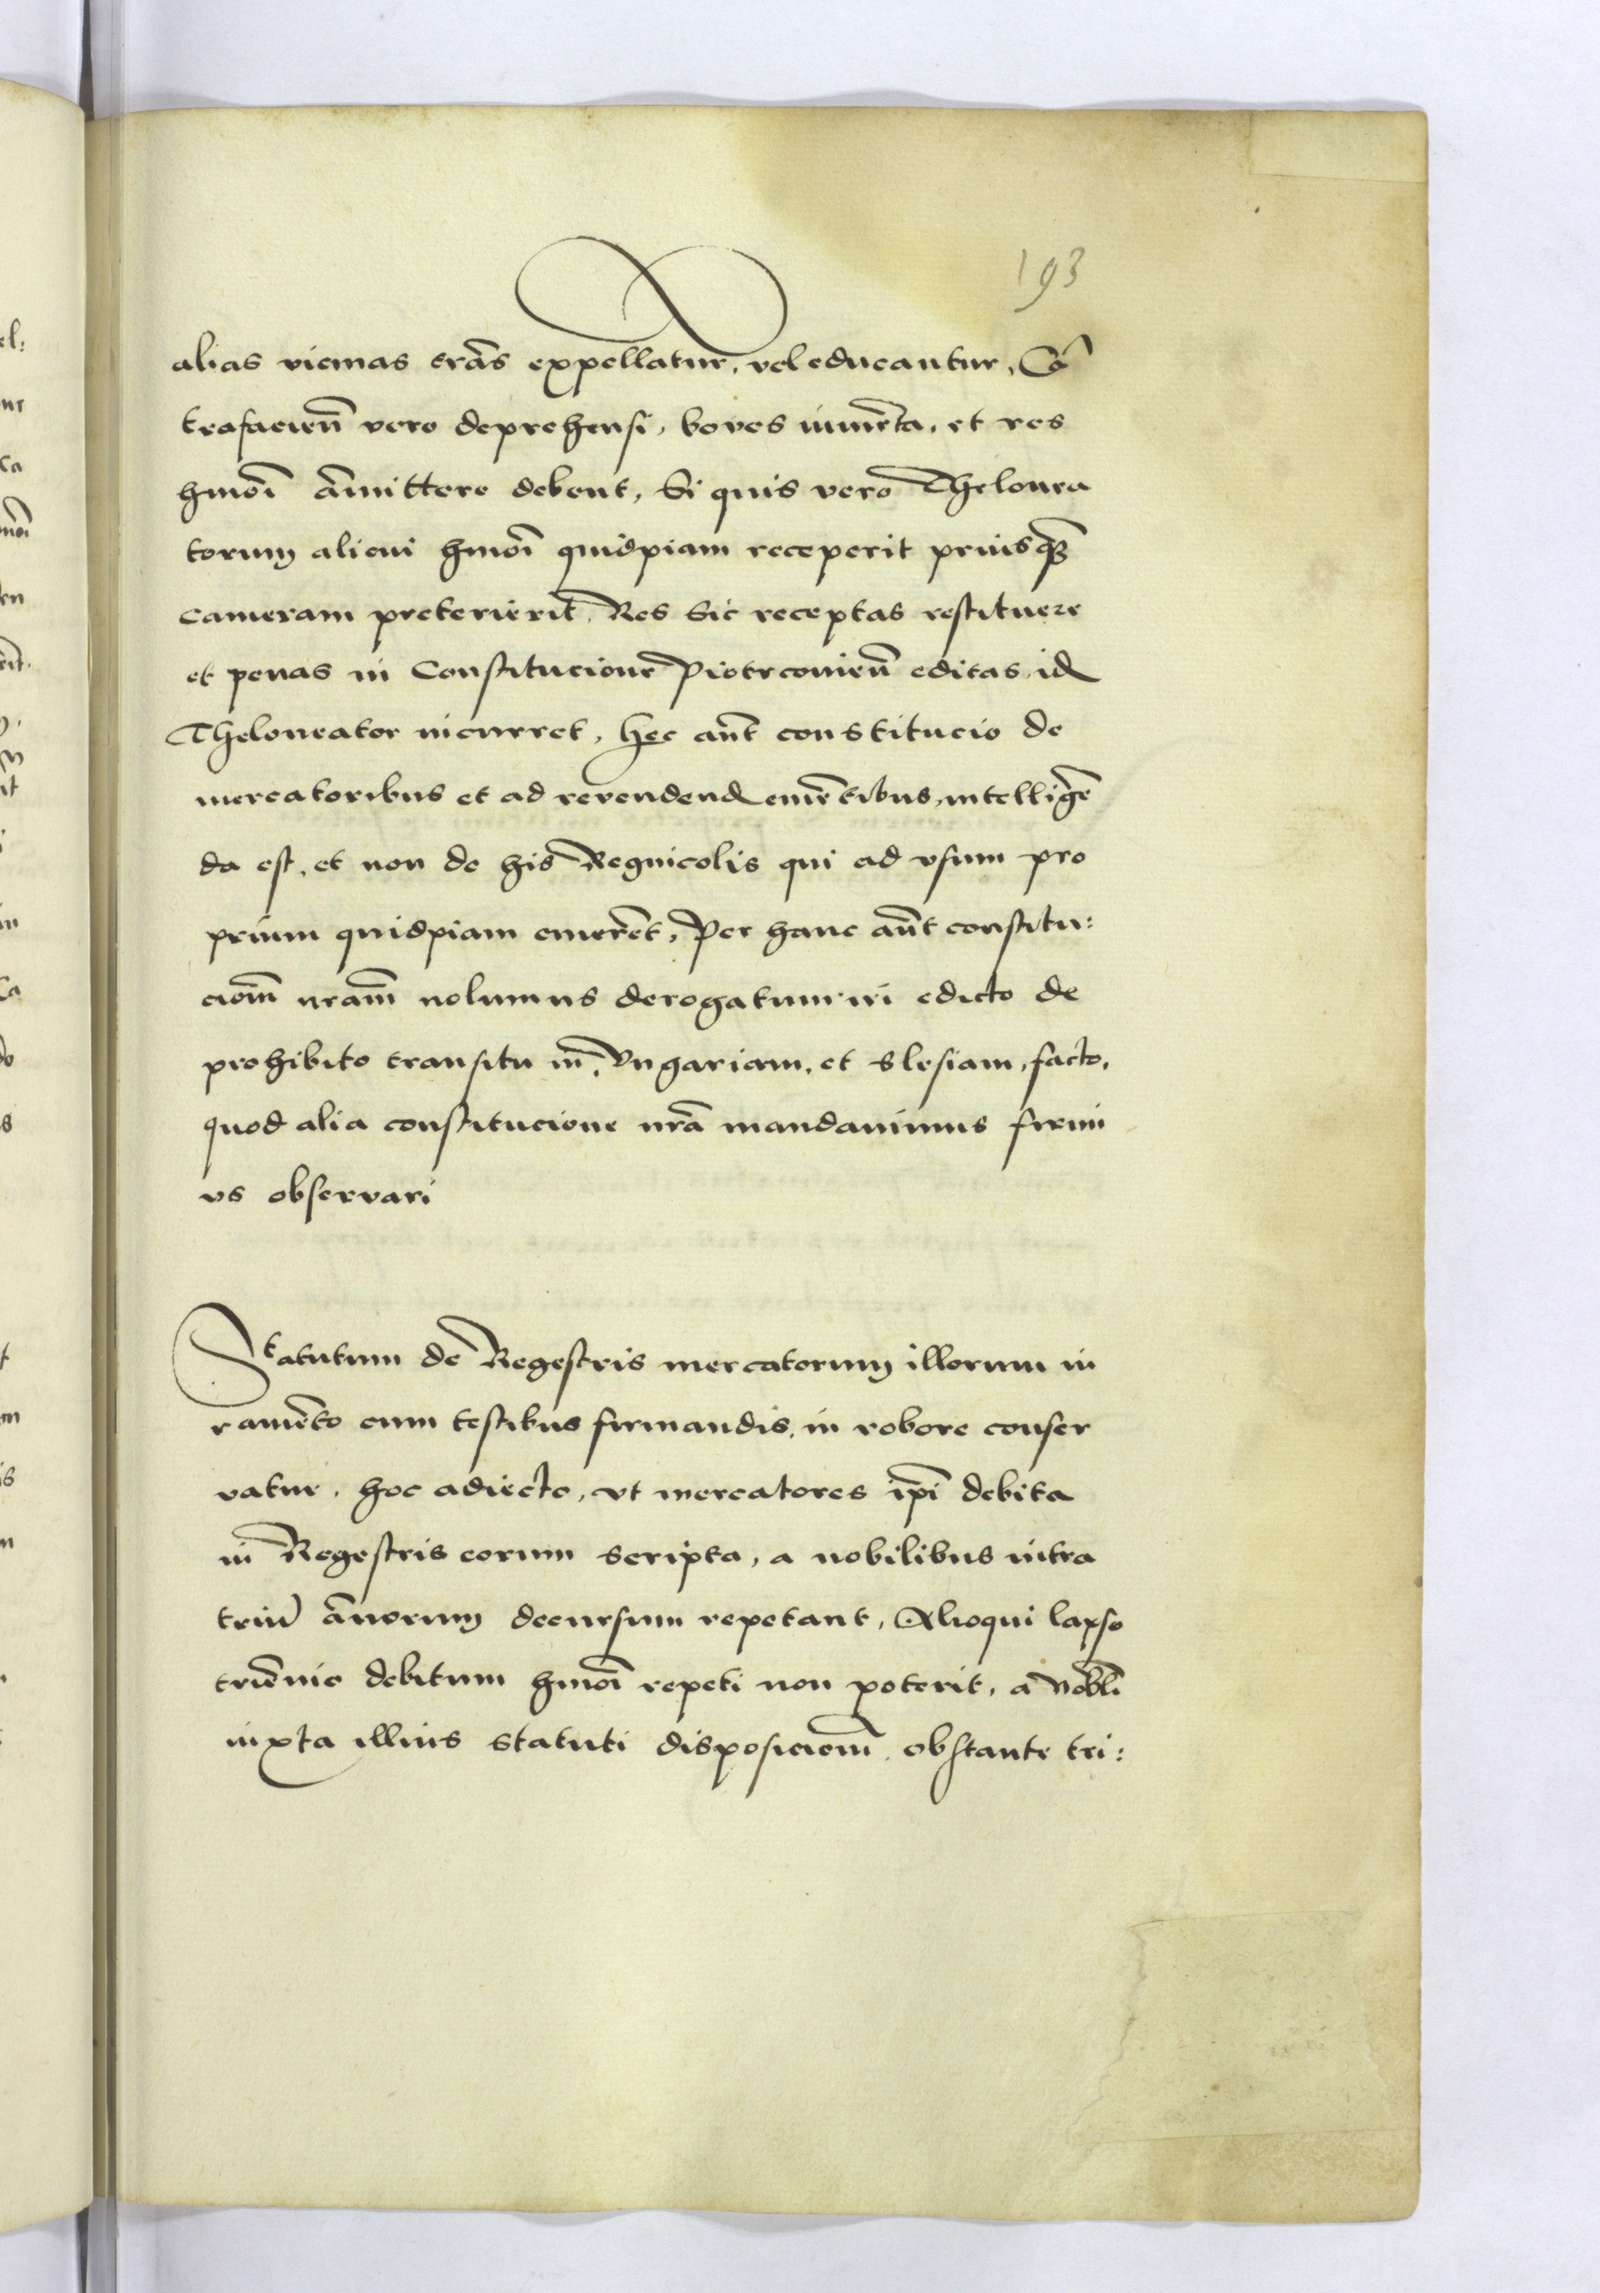 193
alias vicinas terrãs expellatur, vel educantur, Cõ
trafacien̄ vero deprehensi, boves iumẽta, et res
hmoĩ ãmittere debent, Si quis vero Thelonea
torum alicui hmoĩ quidpiam receperit priusq̃
Cameram preterierit, Res sic receptas restituere
et penas in Constitucione Piotrconien̄ editas, id
Theloneator incurret, Hec aũt constitucio de
mercatoribus et ad revendend emẽtibus, intelligẽ
da est, et non de his Regnicolis qui ad vsum pro
prium quidpiam emerẽt, Per hanc aũt constitu:
ciom̃ nram̃ nolumus derogatum iri edicto de
prohibito transitu in Vngariam, et Slesiam, facto,
quod alia constitucione nrã mandavimus firmi
vs observari
Statutum de Regestris mercatorum illorum iu
ramẽto cum testibus firmandis, in robore conser
vatur, hoc adiecto, vt mercatores ip̃i debita
in Regestris eorum scripta, a nobilibus intra
triũ ãnorum decursum repetant, Alioqui lapso
triẽnio debitum hmoĩ repeti non poterit, a Nobl̃i
iuxta illius statuti disposiciom̃, obstante tri: